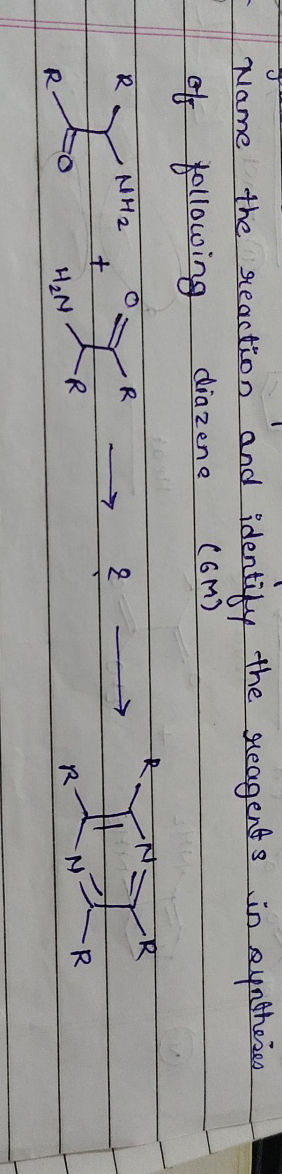 Name the reaction and identify the reagents in syntheses
of following diazene (6M)
R NH2 O R R N R
+ → 2 →
R O H2N R R N R